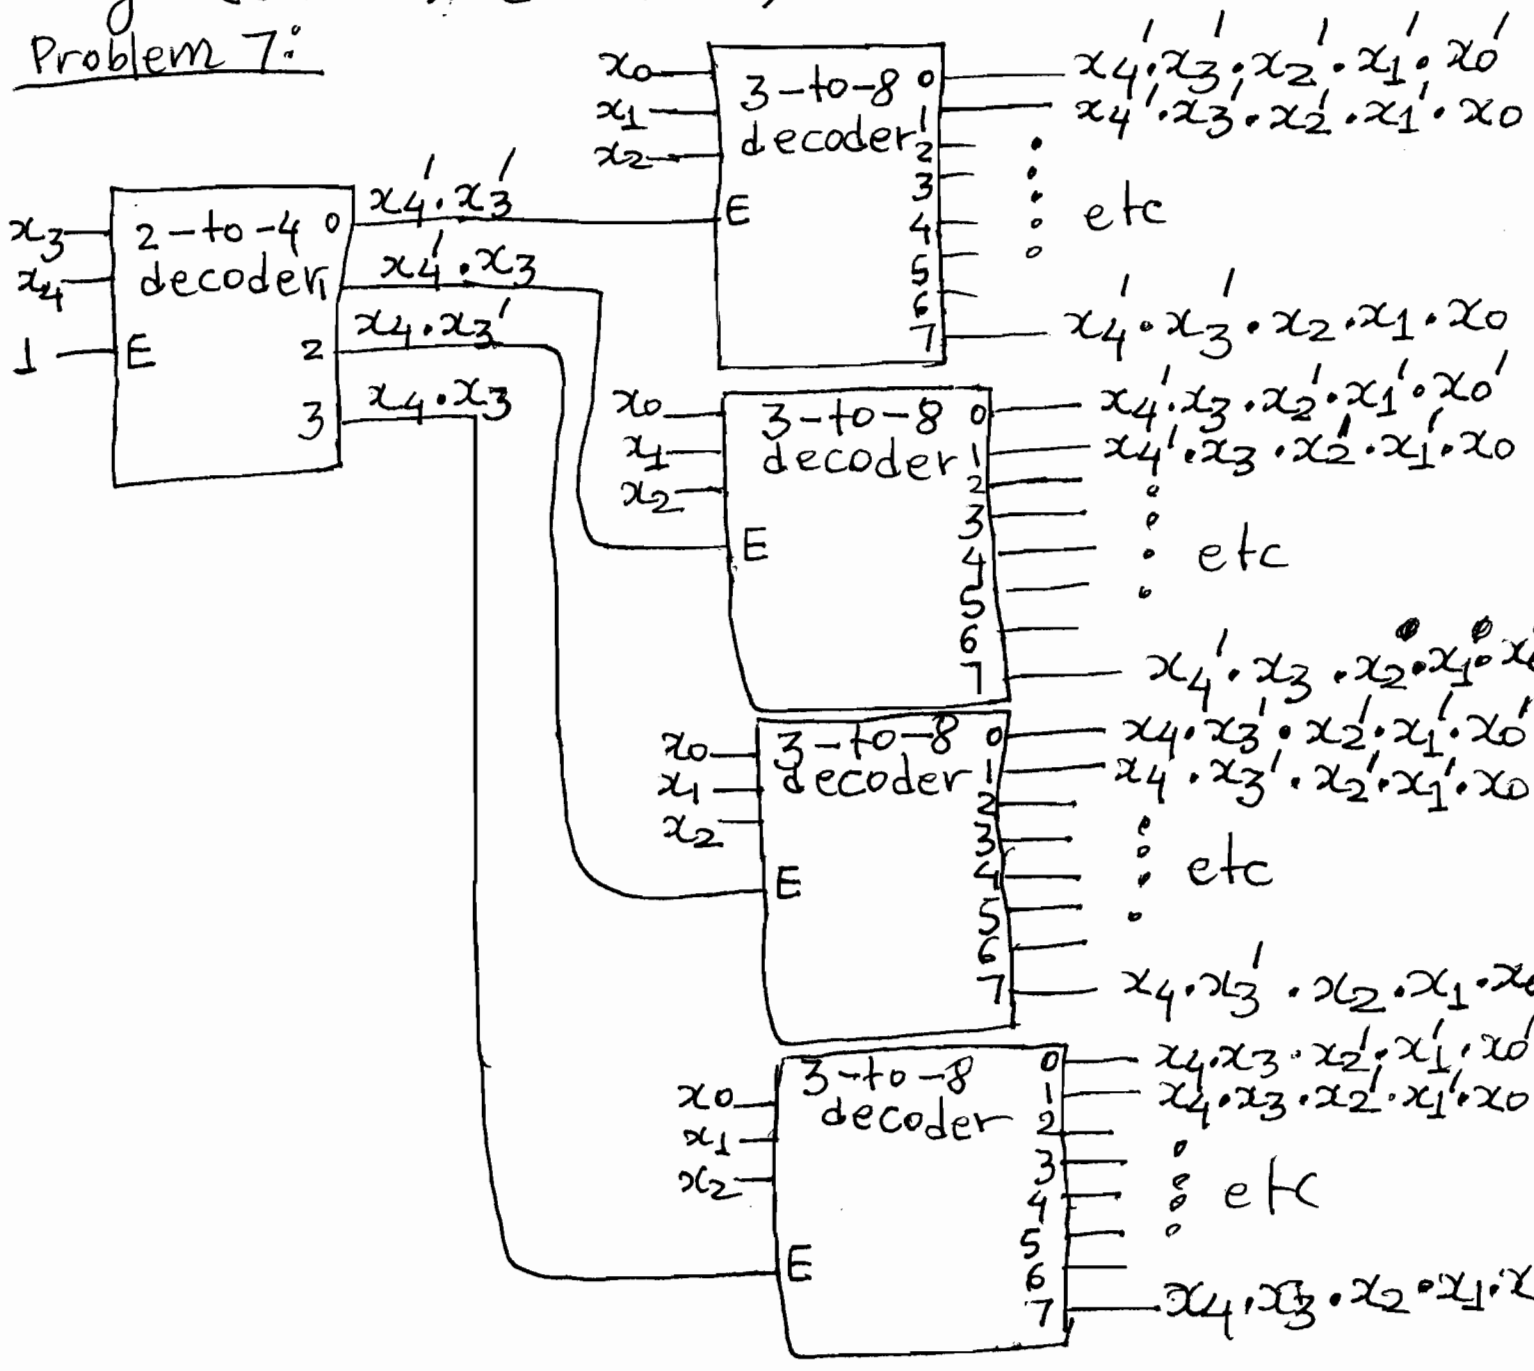 Problem 7:
x3
x4
1
2-to-4
decoder
E
0
1
2
3
x4'.x3'
x4'.x3
x4.x3'
x4.x3
x0
x1
x2
3-to-8
decoder
E
0
1
2
3
4
5
6
7
x4'.x3'.x2'.x1'.x0'
x4'.x3'.x2'.x1'.x0
etc
x4'.x3'.x2.x1.x0
x0
x1
x2
3-to-8
decoder
E
0
1
2
3
4
5
6
7
x4'.x3.x2'.x1'.x0'
x4'.x3.x2'.x1'.x0
etc
x4'.x3.x2.x1.
x0
x1
x2
3-to-8
decoder
E
0
1
2
3
4
5
6
7
x4.x3'.x2'.x1'.x0'
x4.x3'.x2'.x1'.x0
etc
x4.x3'.x2.x1.
x0
x1
x2
3-to-8
decoder
E
0
1
2
3
4
5
6
7
x4.x3.x2'.x1'.x0'
x4.x3.x2'.x1'.x0
etc
x4.x3.x2.x1.